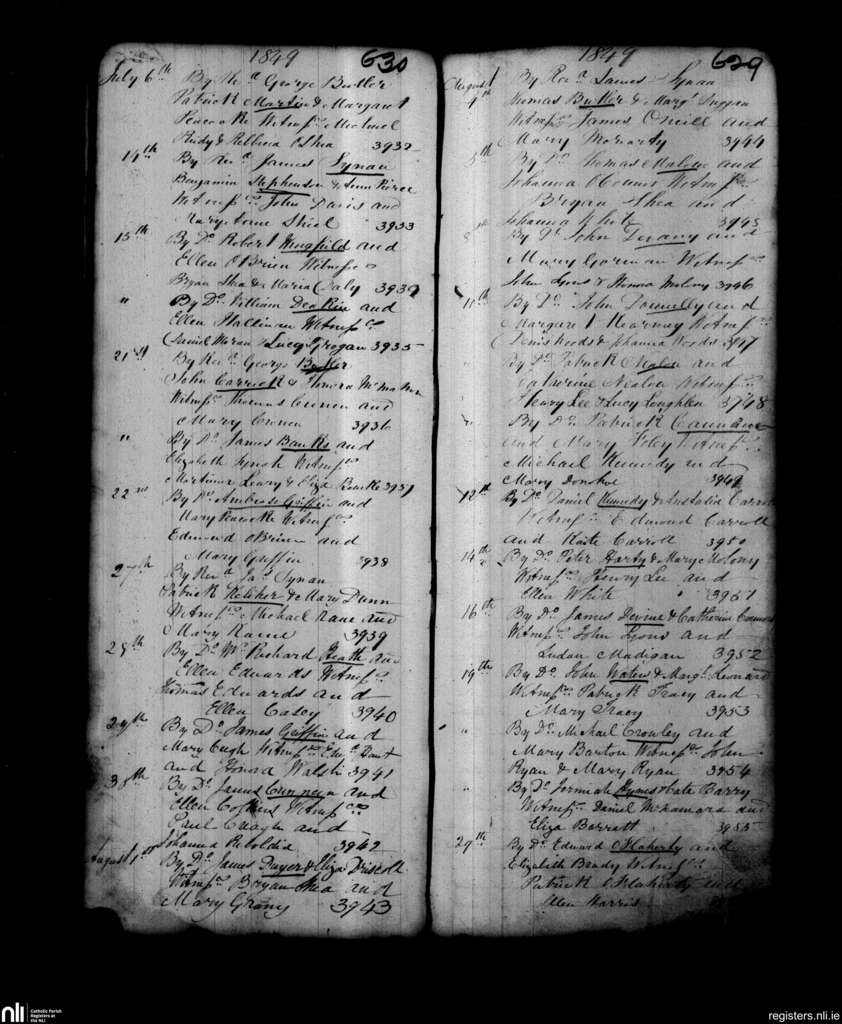 1849 630
July 6th By Revd George Butler
Patrick Martin & Margaret
Peacocke Witnss Michael
& Rebecca Shea 3932
14th By Revd James Synan
Benjamin Stephenson & Ann Pierce
Witnss John Davis and
Mary Anne Shiel 3933
15th By Do Robert Wingfield and
Ellen OBrien Witness
Bryan Shea & Maria Daly 3934
" By Do William Deakin and
Ellen Hallinan Witnss
Daniel Moran & Lucy Grogan 3935
21st By Revd George Butler
John Carrick & Honora McMahon
Witnss Thomas Cronen and
Mary Cronen 3936
" By Do James Banks and
Elizabeth Synch Witnss
Mortimer Leary & Eliza Rourke 3937
22nd By Do Ambrose Griffin and
Mary Peacocke Witnss
Edmund OBrien and
Mary Griffin 3938
27th By Revd Jas Synan
Patrick Keliher & Mary Dunn
Witnss Michael Kane and
Mary Kane 3939
28th By Do Wm Richard Heath and
Ellen Edwards Witnss
Thomas Edwards and
Ellen Casey 3940
29th By Do James Griffin and
Mary Witnss
and Honora Walsh 3941
30th By Do James and
Ellen Witnss
Paul and
Johanna 3942
August 1st By Do James Dwyer & Eliza Driscoll
Witnss Bryan Shea and
Mary 3943
1849 629
August 4th By Revd James Synan
Thomas Butler & Margt Duggan
Witnss James ONeill and
Mary Moriarty 3944
5th By Do Thomas Malone and
Johanna OConnor Witnss
Bryan Shea and
Johanna White 3945
By Do John Devany and
Mary Gorman Witnss
John Lyons & Honora Molony 3946
11th By Do John Donnelly and
Margaret Kearney Witnss
Denis Woods & Johanna Woods 3947
" By Do Patrick Malone and
Catherine Nealon Witnss
Henry Lee & Lucy Loughlen 3948
" By Do Patrick
and Mary Foley Witnss
Michael Kennedy and
Mary Donohoe 3949
12th By Do Daniel Kennedy & Anstatia Carroll
Witnss Edmond Carroll
and Kate Carroll 3950
14th By Do Peter Harty & Mary Molony
Witnss Henry Lee and
Ellen White 3951
16th By Do James Devine & Catherine
Witnss John Lyons and
Madigan 3952
19th By Do John Waters & Margt Leonard
Witnss Patrick Tracy and
Mary Tracy 3953
" By Do Michael Crowley and
Mary Barton Witnss John
Ryan & Mary Ryan 3954
" By Do Jermiah Hynes & Kate Barry
Witnss Daniel McNamara and
Eliza Barrett 3955
29th By Do Edward OFlaherty and
Elizabeth Witnss
Patrick OFlaherty and
Ellen Harris
nli Catholic Parish
Registers at
the NLI
registers.nli.ie